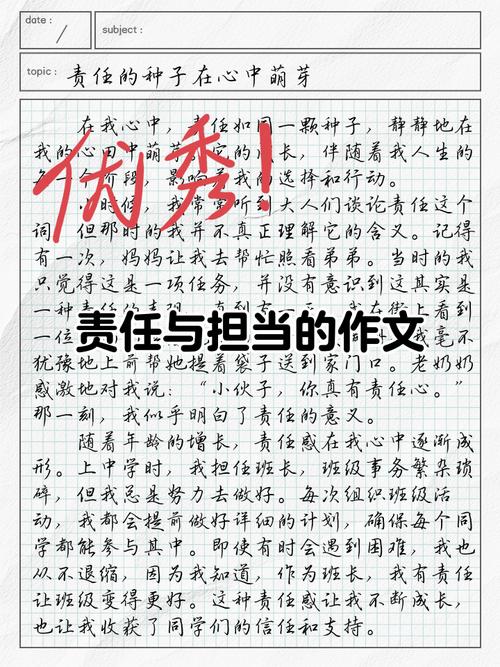 date :
subject :
topic : 责任的种子在心中萌芽
优秀!
责任与担当的作文
在我心中,责任如同一颗种子,静静地在
我的心田中萌芽。它的成长,伴随着我人生的
每一个阶段,影响着我的选择和行动。
小时候,我常常听到大人们谈论责任这个
词,但那时的我并不真正理解它的含义。记得
有一次,妈妈让我去帮忙照看弟弟。当时的我
只觉得这是一项任务,并没有意识到这其实是
一种责任的
一位 我毫不
犹豫地上前帮她提着袋子送到家门口。老奶奶
感激地对我说:“小伙子,你真有责任心。”
那一刻,我似乎明白了责任的意义。
随着年龄的增长,责任感在我心中逐渐成
形。上中学时,我担任班长,班级事务繁杂琐
碎,但我总是努力去做好。每次组织班级活
动,我都会提前做好详细的计划,确保每个同
学都能参与其中。即使有时会遇到困难,我也
从不退缩,因为我知道,作为班长,我有责任
让班级变得更好。这种责任感让我不断成长,
也让我收获了同学们的信任和支持。